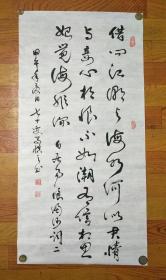 借问江潮与海水何似君情
与妾心相恨不如潮有信相思
始觉海非深 白居易浪淘沙词二
甲午年 七十 书